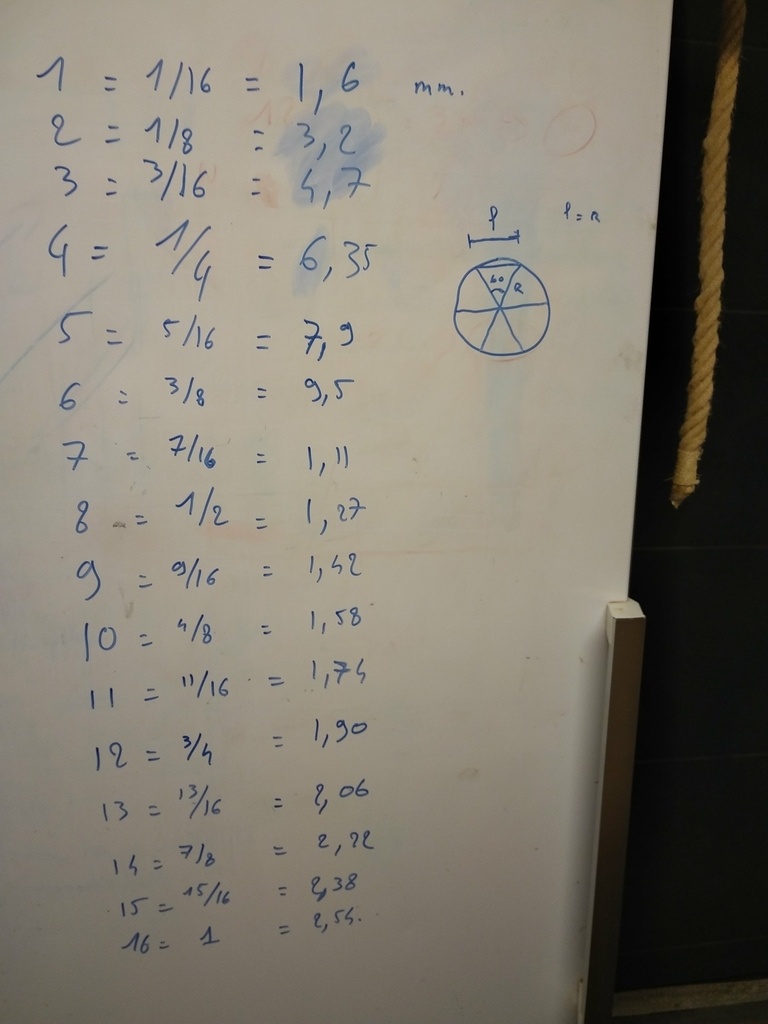 1 = 1/16 = 1,6 mm.
2 = 1/8 = 3,2
3 = 3/16 = 4,7
4 = 1/4 = 6,35
5 = 5/16 = 7,9
6 = 3/8 = 9,5
7 = 7/16 = 1,11
8 = 1/2 = 1,27
9 = 9/16 = 1,42
10 = 4/8 = 1,58
11 = 11/16 = 1,74
12 = 3/4 = 1,90
13 = 13/16 = 2,06
14 = 7/8 = 2,22
15 = 15/16 = 2,38
16 = 1 = 2,54.
l
l = R
60 R